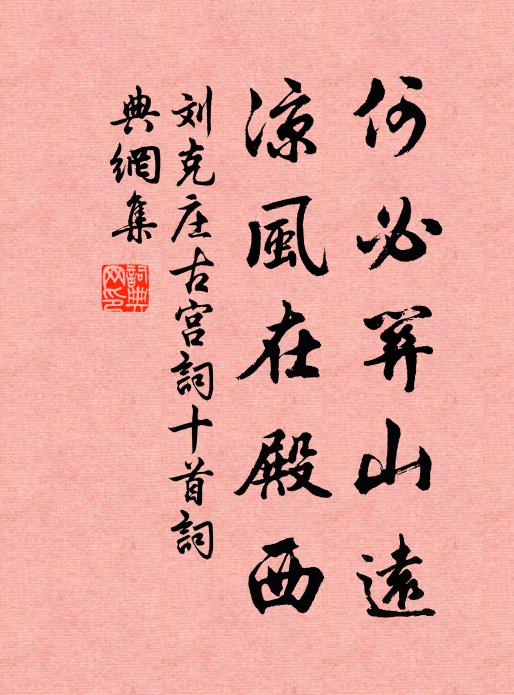 何必关山遠
涼風在殿西
刘克庄古宫詞十首詞
典網集
詞典
网印